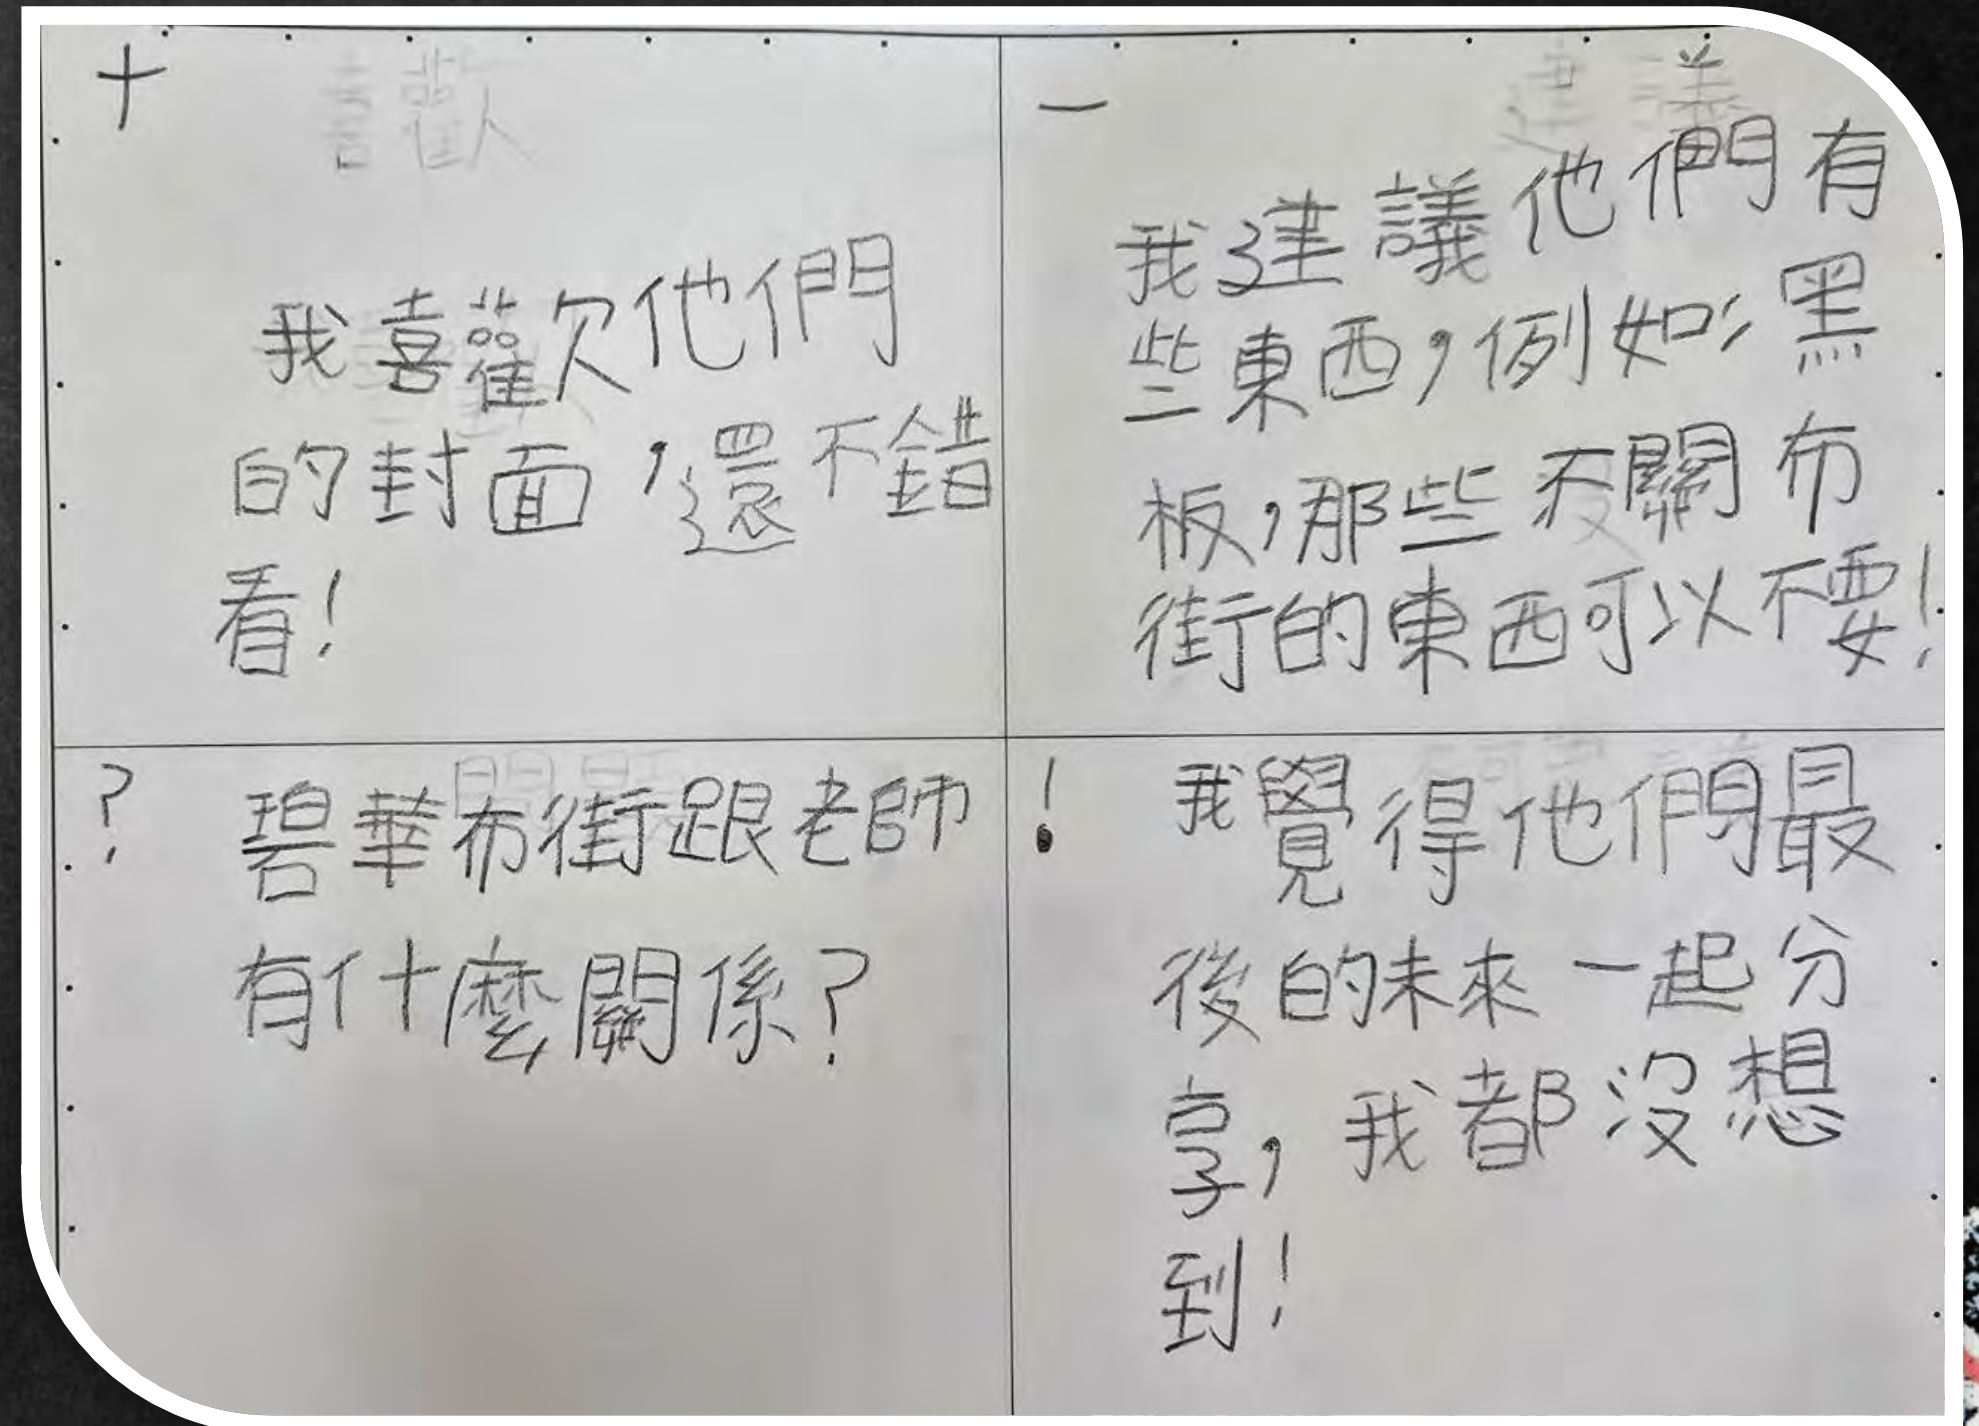 +
喜歡
我喜歡他們
的封面，還不錯
看！
－
建議
我建議他們有
些東西，例如：黑
板，那些不關布
街的東西可以不要！
?
碧華布街跟老師
有什麼關係？
!
我覺得他們最
後的未來一起分
享，我都沒想
到！